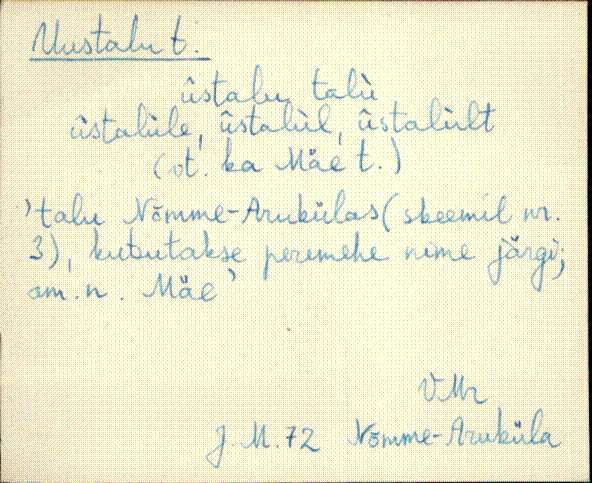 Uustalu t.
ûstalu talù
ûstalùle, ûstalùl, ûstalùlt
(vt. ka Mäe t.)
'talu Nõmme-Arukülas (skeemil nr.
3), kutsutakse peremehe nime järgi;
am. n. Mäe'
VMr
J.M. 72 Nõmme-Aruküla